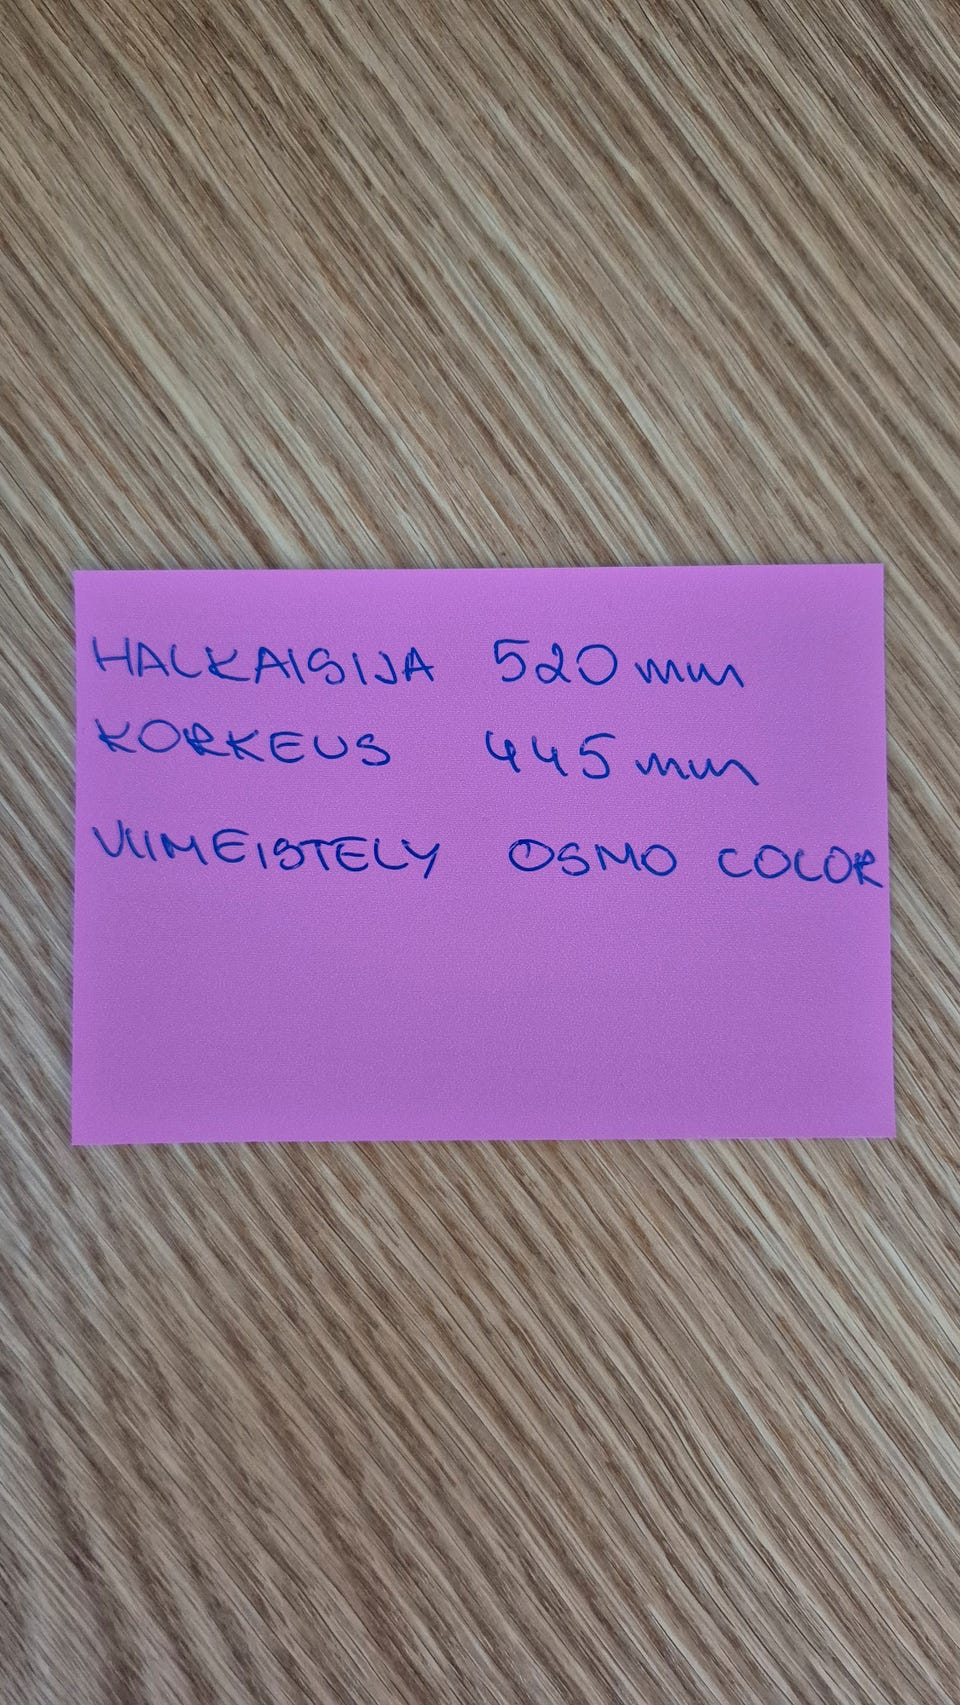 HALKAISIJA 520 mm
KORKEUS 445 mm
VIIMEISTELY OSMO COLOR